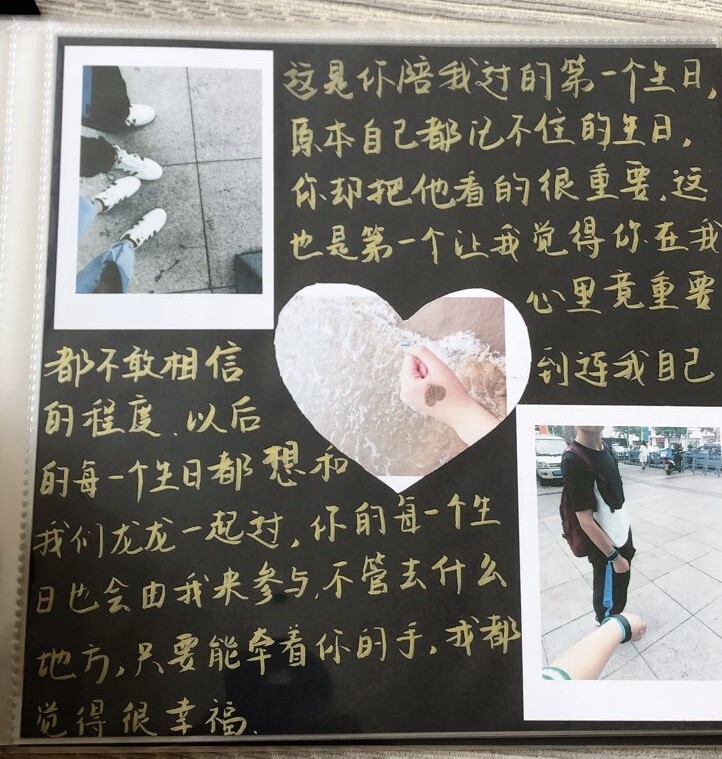 这是你陪我过的第一个生日，
原本自己都记不住的生日，
你却把他看的很重要、这
也是第一个让我觉得你在我
心里竟重要
到连我自己
都不敢相信
的程度、以后
的每一个生日都想和
我们龙龙一起过，你的每一个生
日也会由我来参与、不管去什么
地方，只要能牵着你的手，我都
觉得很幸福、